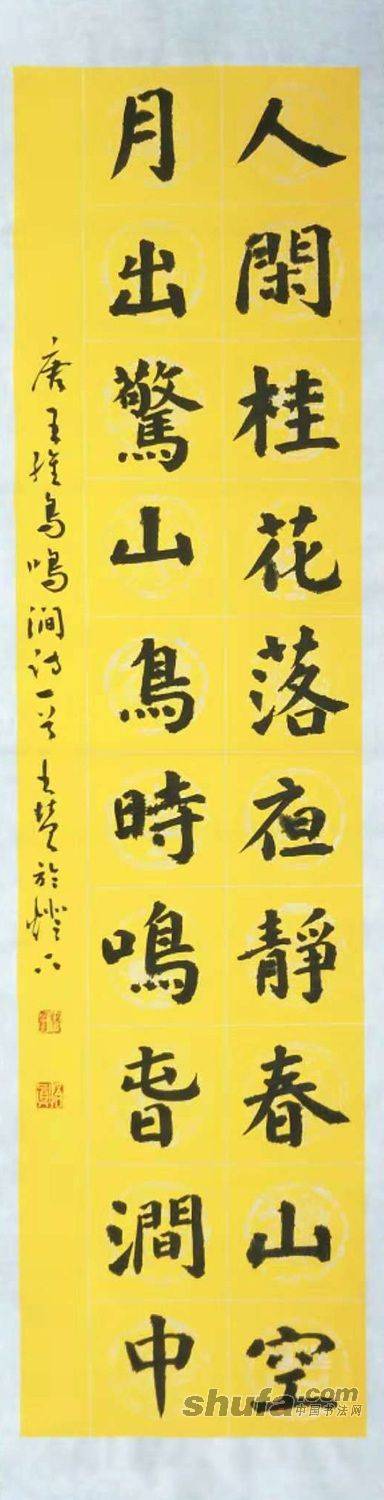 人閑桂花落夜靜春山空
月出驚山鳥時鳴旾澗中
唐王維鳥鳴澗詩一首 於燈下
shufa.com
中国书法网